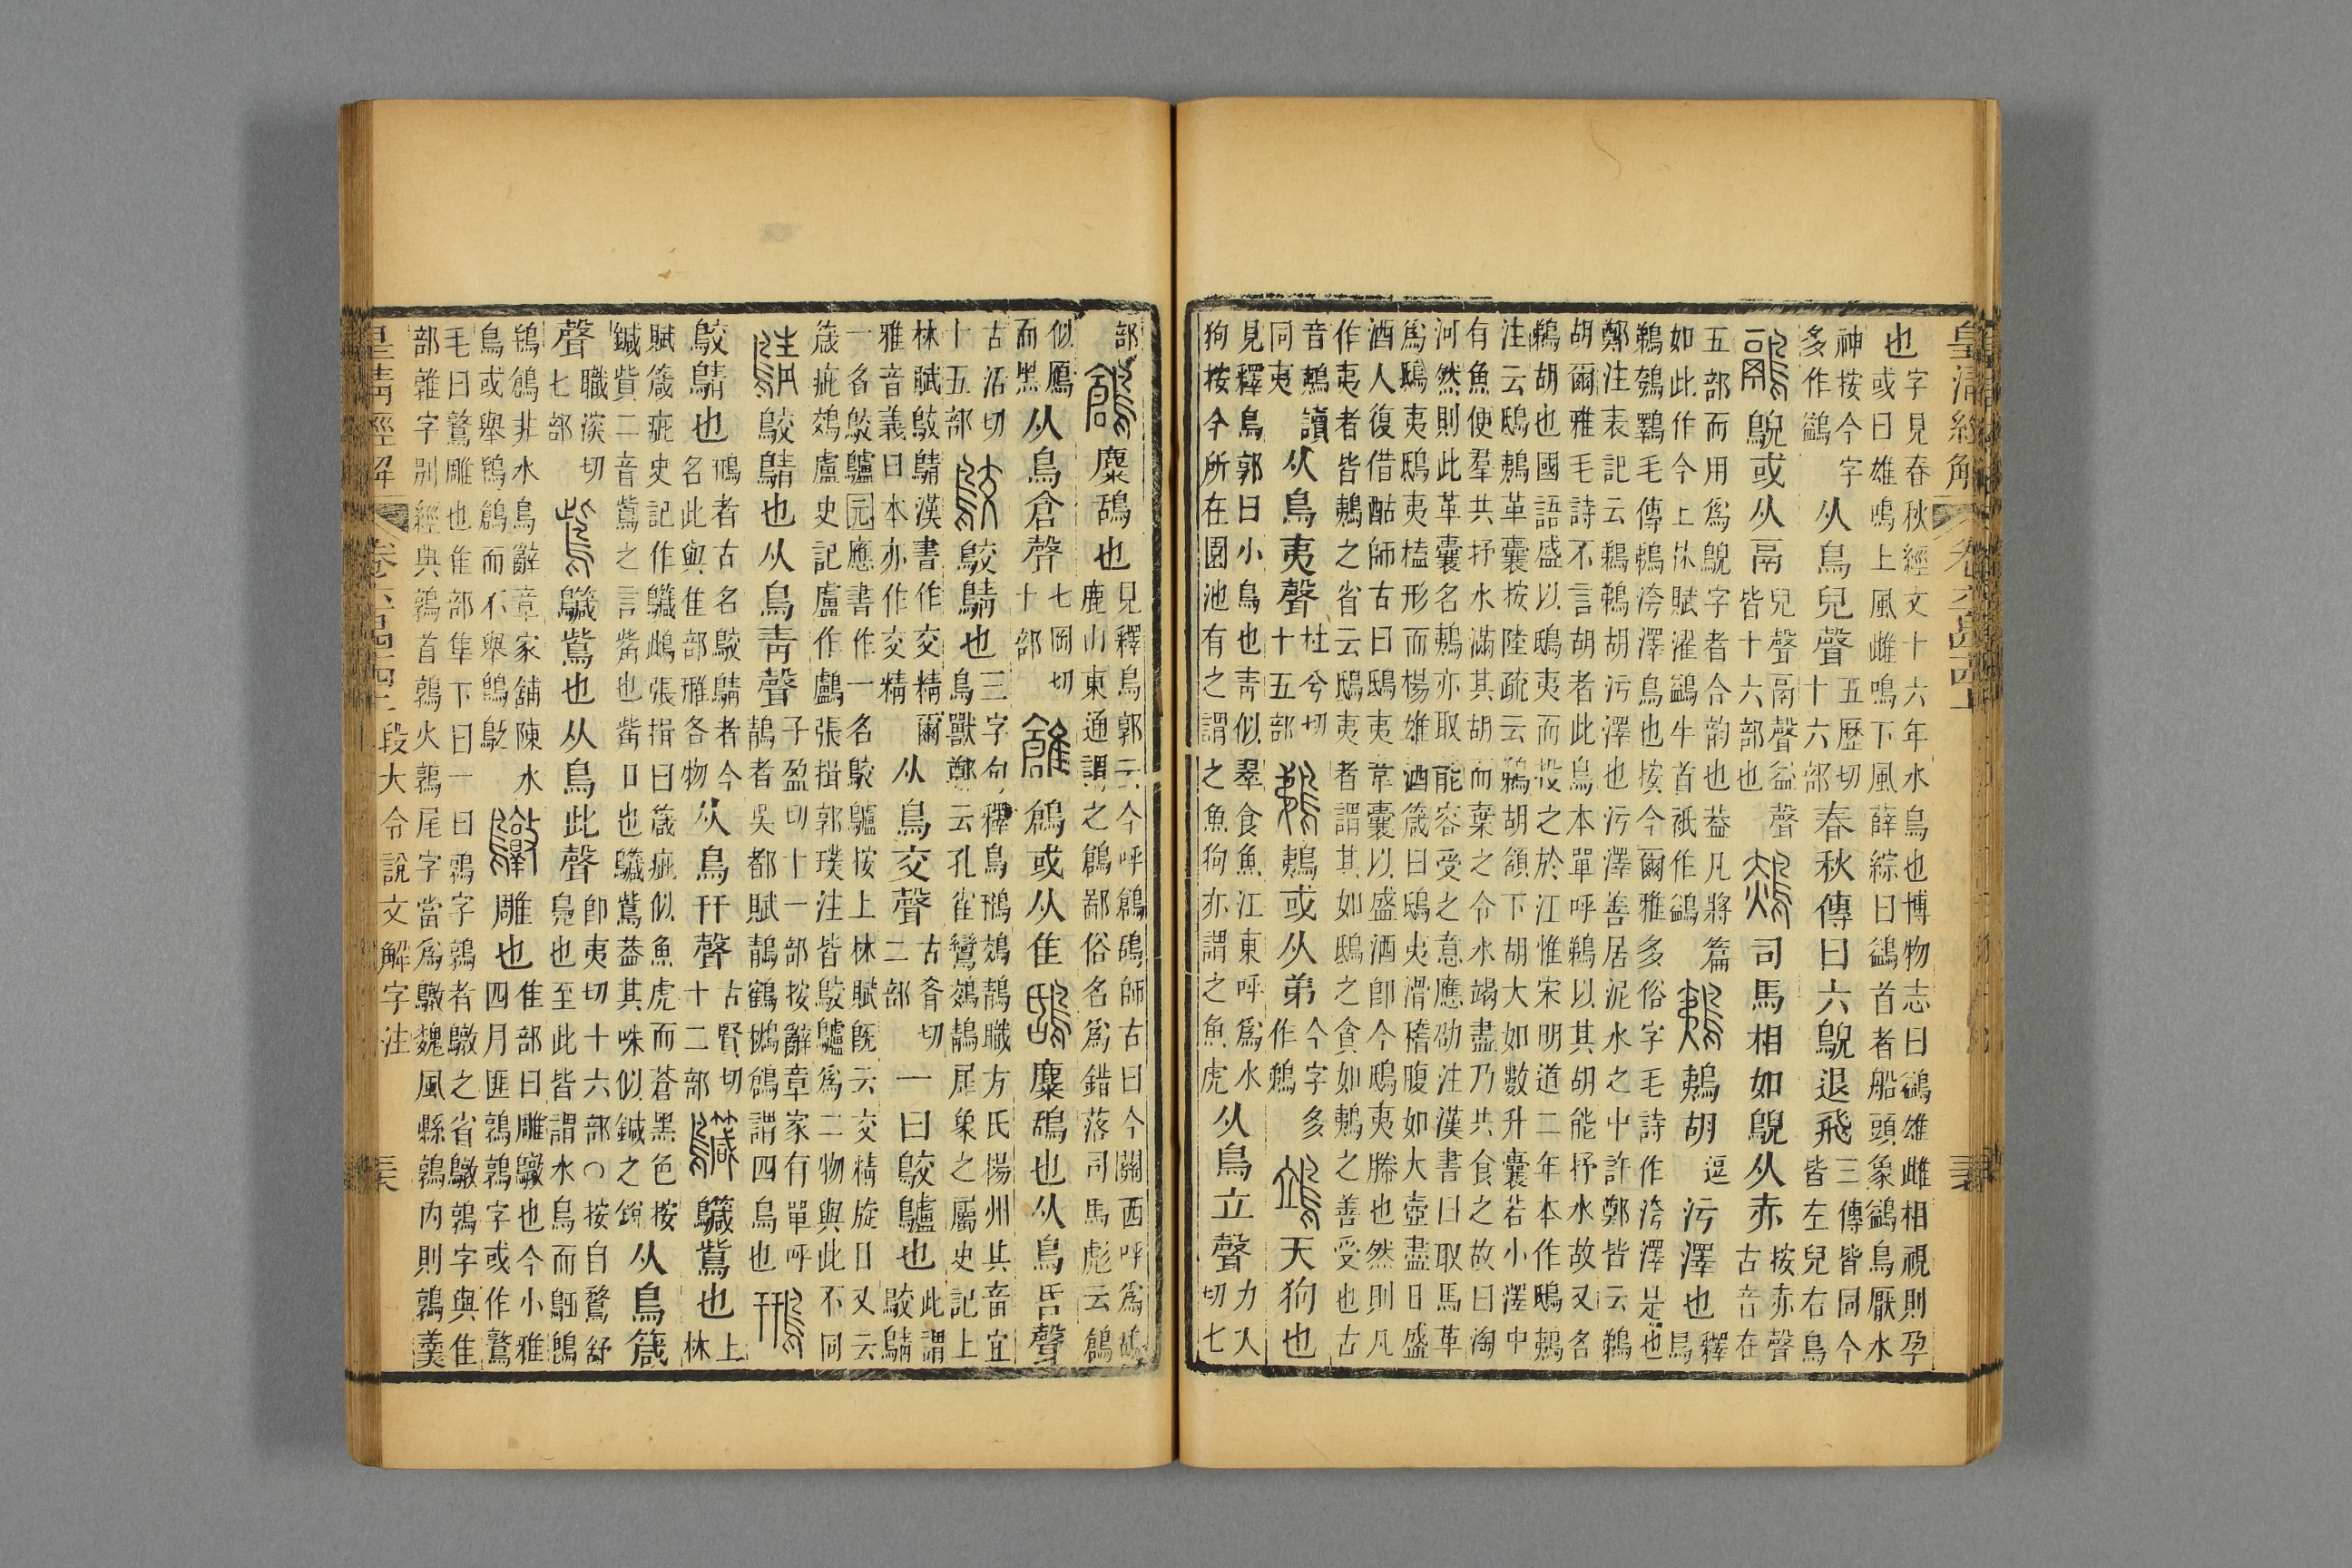 皇清經解
也字見春秋經文十六年水鳥也博物志曰鷁雄雌相視則孕或曰雄鳴上風雌鳴下風薛綜曰鷁首者船頭象鷁鳥厭水
神按今字多作鷁从鳥兒聲五歷切十六部春秋傳曰六鶂退飛三傳皆同今皆左兒右鳥
鷊鶂或从鬲兒聲鬲聲益聲皆十六部也司馬相如鶂从赤按赤聲古音在
五部而用爲鶂字者合韵也葢凡將篇如此作今上林賦濯鷁牛首祇作鷁鴺鴺胡逗污澤也釋鳥
鵜鴮鸅毛傳鵜洿澤鳥也按今爾雅多俗字毛詩作洿澤是也鄭注表記云鵜鵜胡污澤也污澤善居泥水之中許鄭皆云鵜
胡爾雅毛詩不言胡者此鳥本單呼鵜以其胡能抒水故又名鵜胡也國語盛以鴟夷而投之於江惟宋明道二年本作鴟鴺
注云鴟鴺革囊按陸疏云鵜胡頷下胡大如數升囊若小澤中有魚便羣共抒水滿其胡而棄之令水竭盡乃共食之故曰淘
河然則此革囊名鴺亦取能容受之意應劭注漢書曰取馬革爲鴟夷鴟夷榼形而楊雄酒箴曰鴟夷滑稽腹如大壺盡日盛
酒人復借酤師古曰鴟夷韋囊以盛酒卽今鴟夷幐也然則凡作夷者皆鴺之省云鴟夷者謂其如鴟之貪如鴺之善受也古
音鴺讀同夷从鳥夷聲杜兮切十五部鵜鴺或从弟今字多作鵜鴗天狗也
見釋鳥郭曰小鳥也靑似翠食魚江東呼爲水狗按今所在園池有之謂之魚狗亦謂之魚虎从鳥立聲力入切七
部鶬麋鴰也見釋鳥郭云今呼鶬鴰師古曰今關西呼爲鴰鹿山東通謂之鶬鄙俗名爲錯落司馬彪云鶬
似鴈而黑从鳥倉聲七岡切十部鶬或从隹鴰麋鴰也从鳥昏聲
古活切十五部鵁鵁鶄也三字句釋鳥鳽鵁鶄職方氏揚州其畜宜鳥獸鄭云孔雀鸞鵁鶄犀象之屬史記上
林賦鵁鶄漢書作交精爾雅音義曰本亦作交精从鳥交聲古肴切二部一曰鵁鸕也此謂鵁鶄
一名鵁鸕元應書作一名鵁鸕按上林賦旣云交精旋目又云箴疵鵁盧史記盧作鸕張揖郭璞注皆鵁鸕爲二物與此不同
鶄鵁鶄也从鳥靑聲子盈切十一部按辭章家有單呼鶄者吳都賦鶄鶴鶖鶬謂四鳥也鳽
鵁鶄也鳽者古名鵁鶄者今名此與隹部雃各物从鳥幵聲古賢切十二部鱵鴜也上林
賦箴疵史記作鱵鴜張揖曰箴疵似魚虎而蒼黑色按鍼貲二音鴜之言觜也觜口也鱵鴜葢其咮似鍼之銳从鳥箴
聲職深切七部鴜鱵鴜也从鳥此聲卽夷切十六部○按自鶩舒鳧也至此皆謂水鳥而
鴇鶬非水鳥辭章家鋪陳水鳥或舉鴇鶬而不舉鷻雕也隹部曰雕鷻也今小雅四月匪鶉鶉字或作鷻
毛曰鷻雕也隹部隼下曰一曰鶉字鶉者鷻之省鷻鶉字與隹部雜字別經典鶉首鶉火鶉尾字當爲鷻魏風縣鶉內則鶉羹
皇清經解 段大令說文解字注